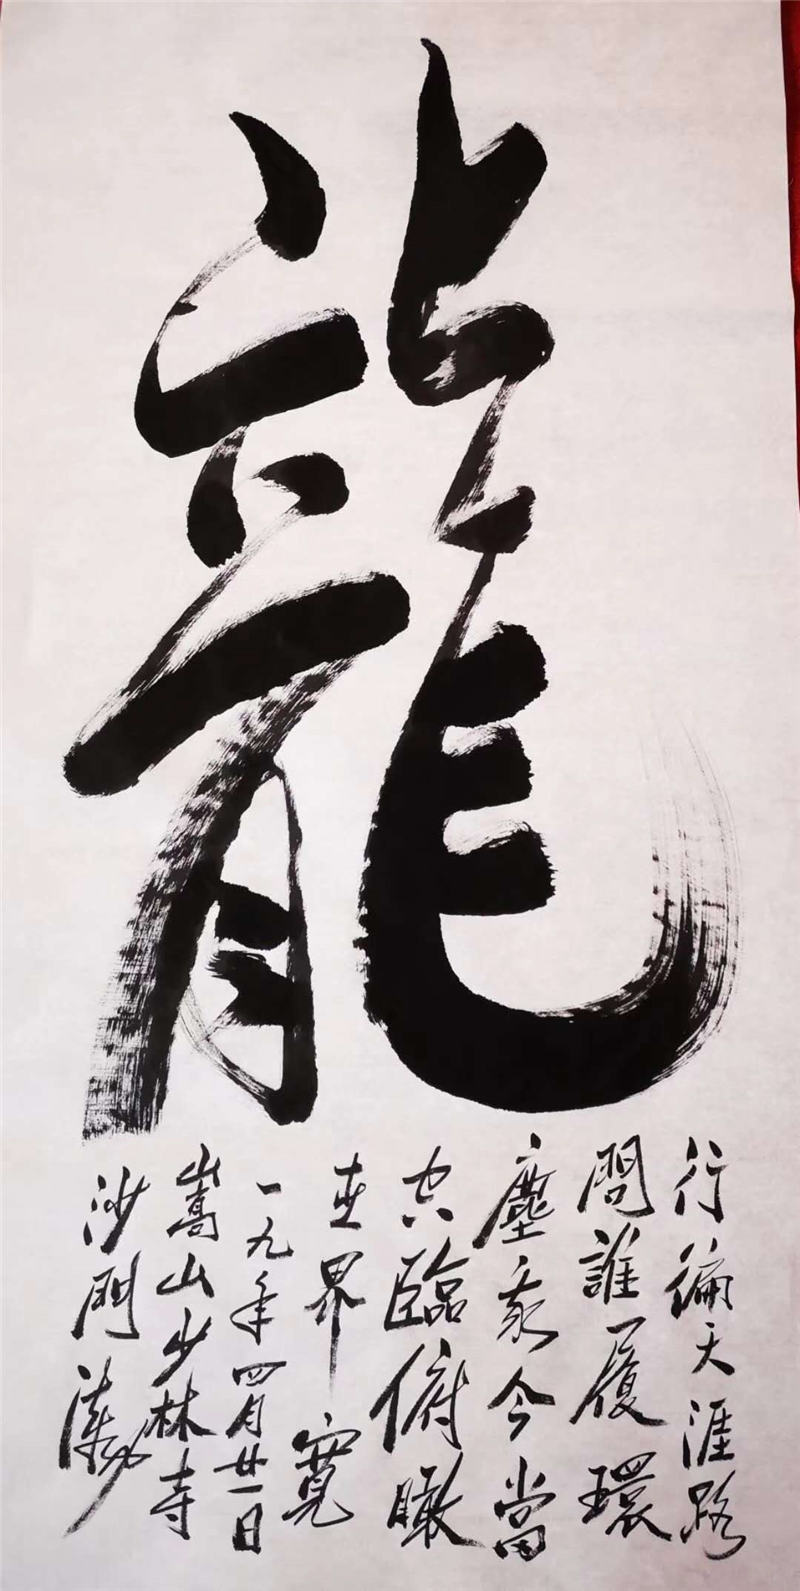 龍
行徧天涯路
問誰履環
塵我今當
空臨俯瞰
世界寬
一九年四月廿一日
嵩山少林寺
沙門